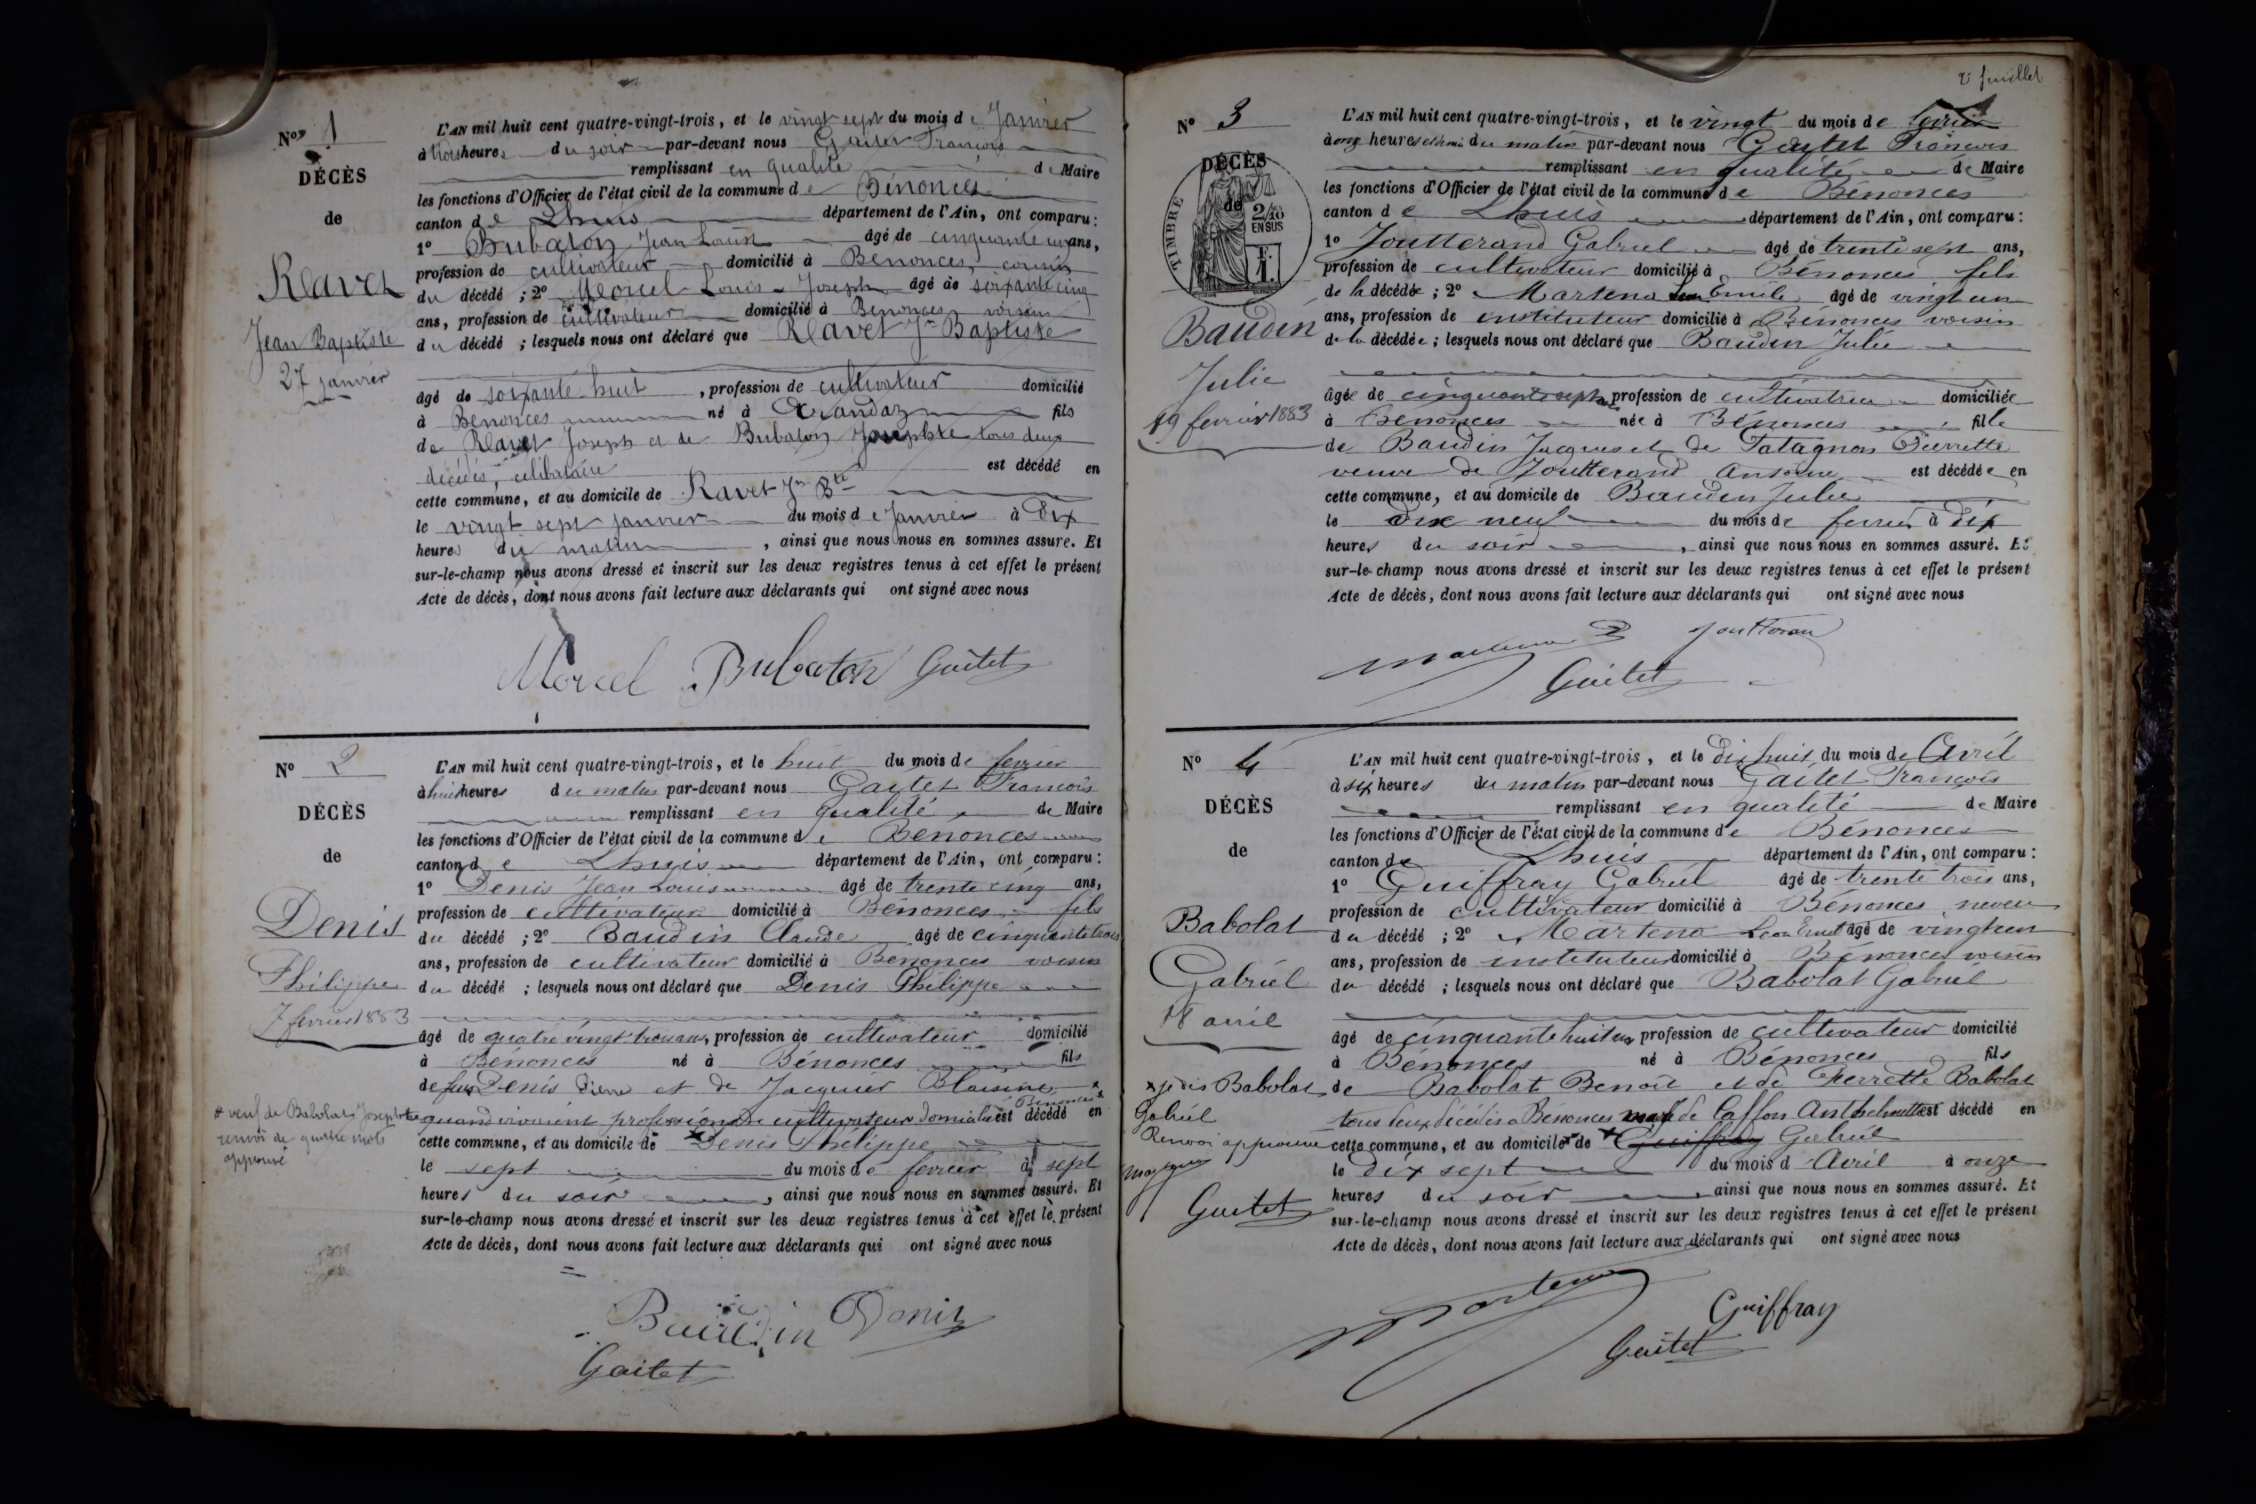 No 1
DÉCÈS
de
Ravet
Jean Baptiste
27 janvier
L'AN mil huit cent quatre-vingt-trois, et le vingt sept du mois de Janvier
à trois heures du soir par-devant nous Gaitet François
remplissant en qualité de Maire
les fonctions d'Officier de l'état civil de la commune de Bénonces
canton de Lhuis département de l'Ain, ont comparu :
1º Bubaton Jean Louis âgé de cinquante un ans,
profession de cultivateur domicilié à Benonces, cousin
du décédé ; 2º Morcel Louis Joseph âgé de soixante cinq
ans, profession de cultivateur domicilié à Benonces voisin
du décédé ; lesquels nous ont déclaré que Ravet Jn Baptiste
âgé de soixante huit, profession de cultivateur domicilié
à Benonces né à fils
de Ravet Joseph et de Bubaton Josephte tous deux
décédés, célibataire est décédé en
cette commune, et au domicile de Ravet Jn Bte
le vingt sept janvier du mois de Janvier à dix
heures du matin, ainsi que nous nous en sommes assuré. Et
sur-le-champ nous avons dressé et inscrit sur les deux registres tenus à cet effet le présent
Acte de décès, dont nous avons fait lecture aux déclarants qui ont signé avec nous
Morcel Bubaton Gaitet
No 2
DÉCÈS
de
Denis
Philippe
7 fevrier 1883
+ veuf de Babolat Josephte
renvoi de quatre mots
approuvé
L'AN mil huit cent quatre-vingt-trois, et le huit du mois de fevrier
à huit heures du matin par-devant nous Gaytet François
remplissant en qualité de Maire
les fonctions d'Officier de l'état civil de la commune de Benonces
canton de Lhuis département de l'Ain, ont comparu :
1º Denis Jean Louis âgé de trente cinq ans,
profession de cultivateur domicilié à Bénonces fils
du décédé ; 2º Baudin Claude âgé de cinquante trois
ans, profession de cultivateur domicilié à Benonces voisin
du décédé ; lesquels nous ont déclaré que Denis Philippe
âgé de quatre vingt trois ans, profession de cultivateur domicilié
à Bénonces né à Bénonces fils
de feu Denis Pierre et de Jacquier Blaisine
quand vivaient profession de cultivateur domicilié Benonces est décédé en
cette commune, et au domicile de Denis Philippe
le sept du mois de fevrier à sept
heures du soir, ainsi que nous nous en sommes assuré. Et
sur-le-champ nous avons dressé et inscrit sur les deux registres tenus à cet effet le présent
Acte de décès, dont nous avons fait lecture aux déclarants qui ont signé avec nous
Baudin Denis
Gaitet
2e feuillet
No 3
DÉCÈS
de
TIMBRE
2/10
EN SUS
Baudin
Julie
19 fevrier 1883
L'AN mil huit cent quatre-vingt-trois, et le vingt du mois de fevrier
à onz heures et demi du matin par-devant nous Gaytet François
remplissant en qualité de Maire
les fonctions d'Officier de l'état civil de la commune de Bénonces
canton de Lhuis département de l'Ain, ont comparu :
1º Joutterand Gabriel âgé de trente sept ans,
profession de cultivateur domicilié à Bénonces fils
de la décédée ; 2º Marteno Leon Emile âgé de vingt un
ans, profession de instituteur domicilié à Bénonces voisin
de la décédée ; lesquels nous ont déclaré que Baudin Julie
âgée de cinquante sept ans profession de cultivatrice domiciliée
à Benonces née à Bénonces fille
de Baudin Jacques et de Patagnon Pierrette
veuve de Joutterand est décédée en
cette commune, et au domicile de Baudin Julie
le dix neuf du mois de fevrier à dix
heures du soir, ainsi que nous nous en sommes assuré. Et
sur-le-champ nous avons dressé et inscrit sur les deux registres tenus à cet effet le présent
Acte de décès, dont nous avons fait lecture aux déclarants qui ont signé avec nous
Marteno Joutterand
Gaitet
No 4
DÉCÈS
de
Babolat
Gabriel
18 avril
+ je dis Babolat
Gabriel
Renvoi approuvé
Gaitet
L'AN mil huit cent quatre-vingt-trois, et le dix huit du mois de Avril
à six heures du matin par-devant nous Gaitet François
remplissant en qualité de Maire
les fonctions d'Officier de l'état civil de la commune de Bénonces
canton de Lhuis département de l'Ain, ont comparu :
1º Guiffray Gabriel âgé de trente trois ans,
profession de cultivateur domicilié à Bénonces neveu
du décédé ; 2º Marteno Leon Emile âgé de vingt un
ans, profession de instituteur domicilié à Bénonces voisin
du décédé ; lesquels nous ont déclaré que Babolat Gabriel
âgé de cinquante huit ans profession de cultivateur domicilié
à Bénonces né à Bénonces fils
de Babolat Benoît et de Pierrette Babolat
tous deux décédés a Bénonces de est décédé en
cette commune, et au domicile de + Guiffray Gabriel
le dix sept du mois d Avril à onze
heures du soir, ainsi que nous nous en sommes assuré. Et
sur-le-champ nous avons dressé et inscrit sur les deux registres tenus à cet effet le présent
Acte de décès, dont nous avons fait lecture aux déclarants qui ont signé avec nous
Marteno
Guiffray
Gaitet